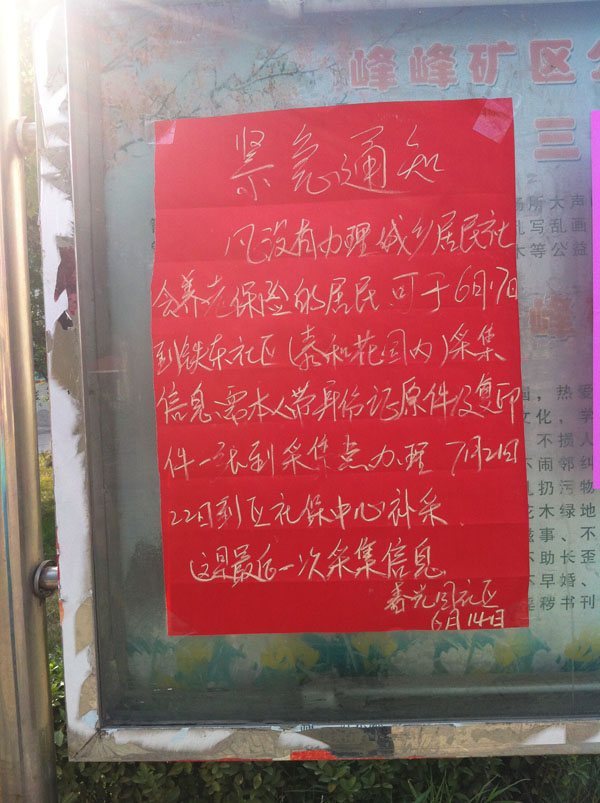 峰峰矿区公
三
紧急通知
凡没有办理城乡居民社
会养老保险的居民可于6月17日
到铁东社区（泰和花园内）采集
信息需本人带身份证原件及复印
件一张到采集点办理 7月21日
22日到区社保中心补采
这是最后一次采集信息
春光园社区
6月14日
场所大声
乱写乱画
木等公益
峰
，热爱
文化，学
、不损人
不闹邻纠
乱扔污物
花木绿地
不助长歪
不早婚、
秽书刊